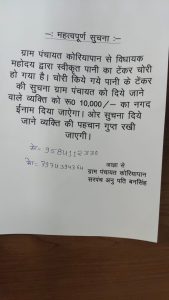 -: महत्वपूर्ण सुचना :-
ग्राम पंचायत कोरियापान से विधायक
महोदय द्वारा स्वीकृत पानी का टेंकर चोरी
हो गया है। चोरी किये गये पानी के टेंकर
की सुचना ग्राम पंचायत को दिये जाने
वाले व्यक्ति को रू0 10,000/- का नगद
ईनाम दिया जाऐगा। ओर सुचना दिये
जाने व्यक्ति की पहचान गुप्त रखी
जाएगी।
आज्ञा से
ग्राम पंचायत कोरियापान
सरपंच अनु पति बनसिंह